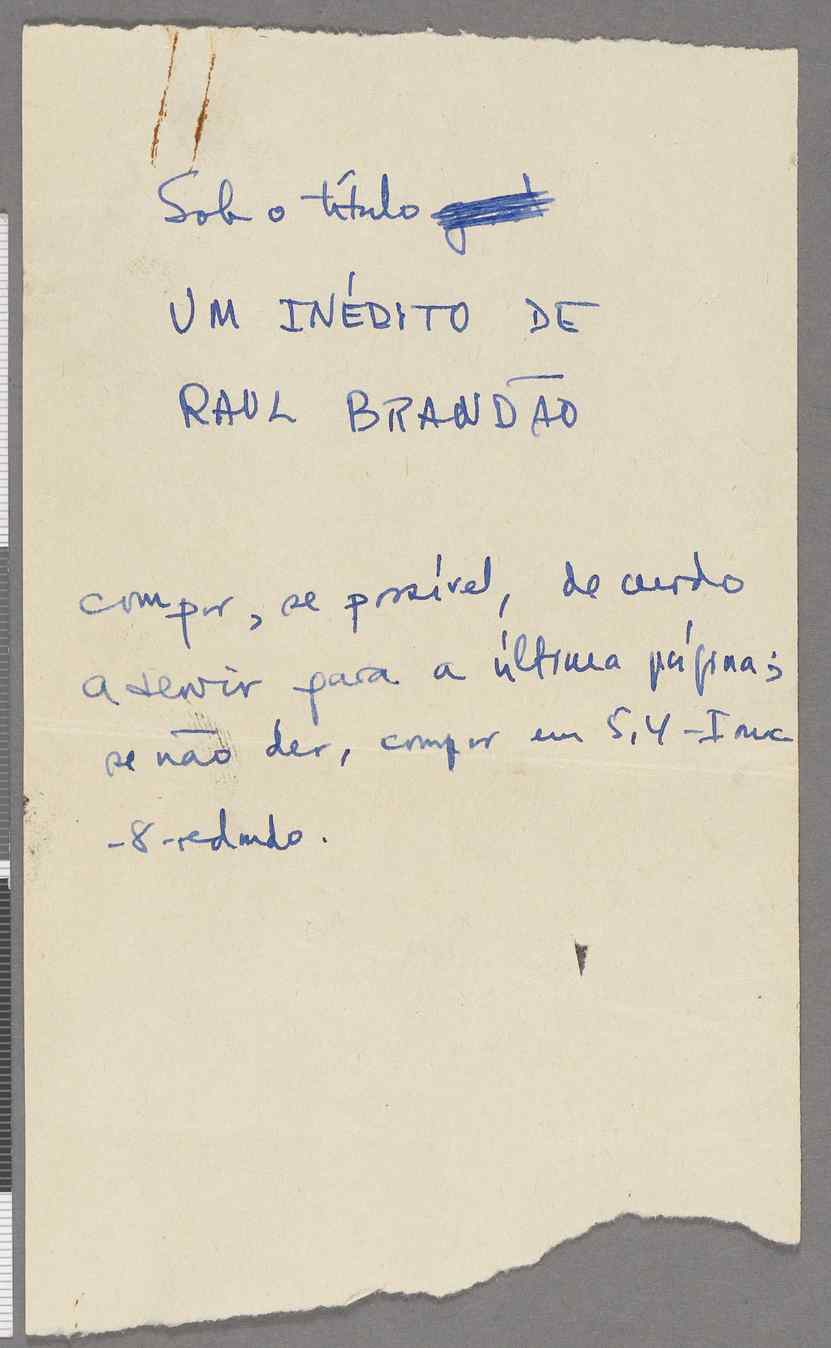 Sob o título
UM INÉDITO DE
RAUL BRANDÃO
compor, se possível, de
a servir para a última página;
se não der, compor em 5,4 -
-8-redondo.